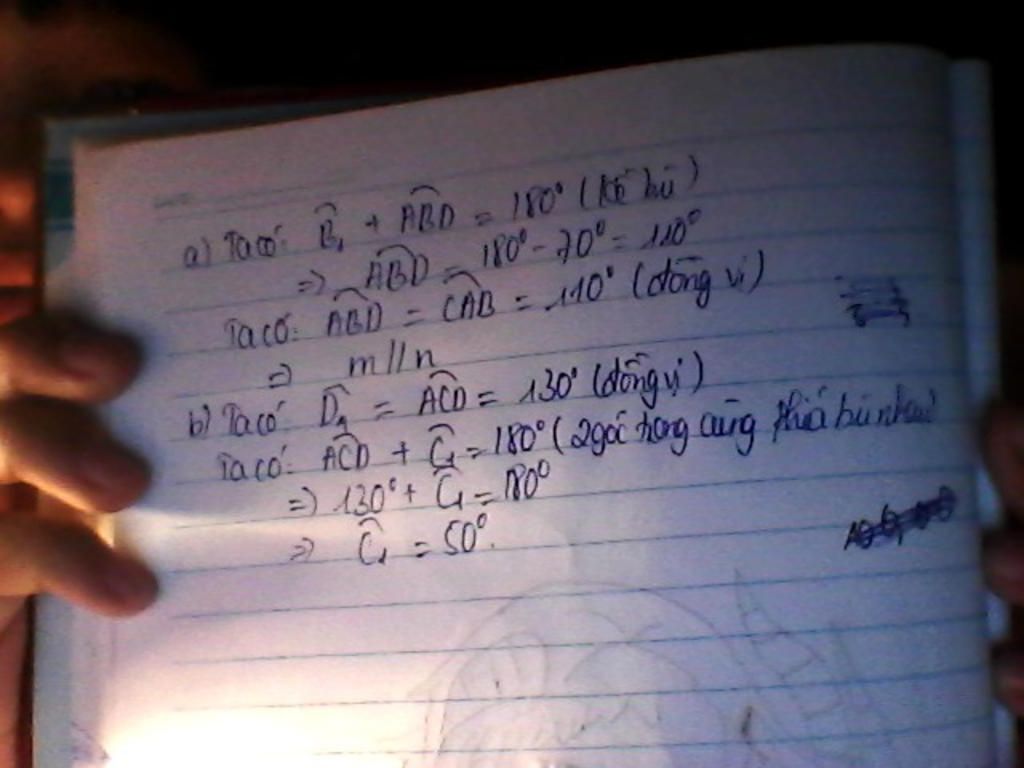 a) Ta có: B̂₁ + ABD̂ = 180° (kề bù)
=> ABD̂ = 180° - 70° = 110°
Ta có: ABD̂ = CAB̂ = 110° (đồng vị)
=> m//n
b) Ta có: D̂₁ = ACD̂ = 130° (đồng vị)
Ta có: ACD̂ + Ĉ₁ = 180° (2 góc trong cùng phía bù nhau)
=> 130° + Ĉ₁ = 180°
=> Ĉ₁ = 50°.